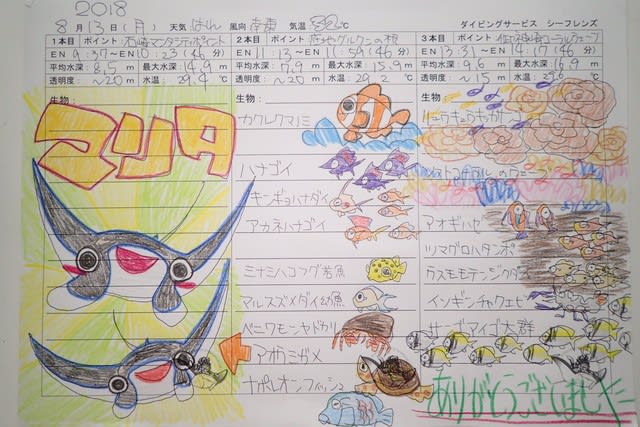 2018
8月13日(月) 天気 はれ 風向 南東 気温 32℃ ダイビングサービス シーフレンズ
1本目 ポイント 石崎マンタシティポイント
EN :37~EN 10:23 (46分)
平均水深: 8.5m 最大水深: 14.9m
透明度: ~20m 水温: 29.4℃
生物:
マンタ
2本目 ポイント
EN 11:13~EN 11:59 (46分)
平均水深: 7.9m 最大水深: 15.9m
透明度: ~20m 水温: 29.2℃
生物:
カクレクマノミ
ハナゴイ
キンギョハナダイ
アカネハナゴイ
ミナミハコフグ若魚
マルスズメダイ幼魚
ベニワモンヤドカリ
アオウミガメ
ナポレオンフィッシュ
3本目 ポイント
EN 13:31~EN 14:17 (46分)
平均水深: 9.6m 最大水深: 16.9m
透明度: ~15m 水温: 29.6℃
生物:
アオギハゼ
ツマグロハタンポ
ウスモモテンジクダイ
イソギンチャクエビ
サザナミアイゴ大群
ありがとうございました